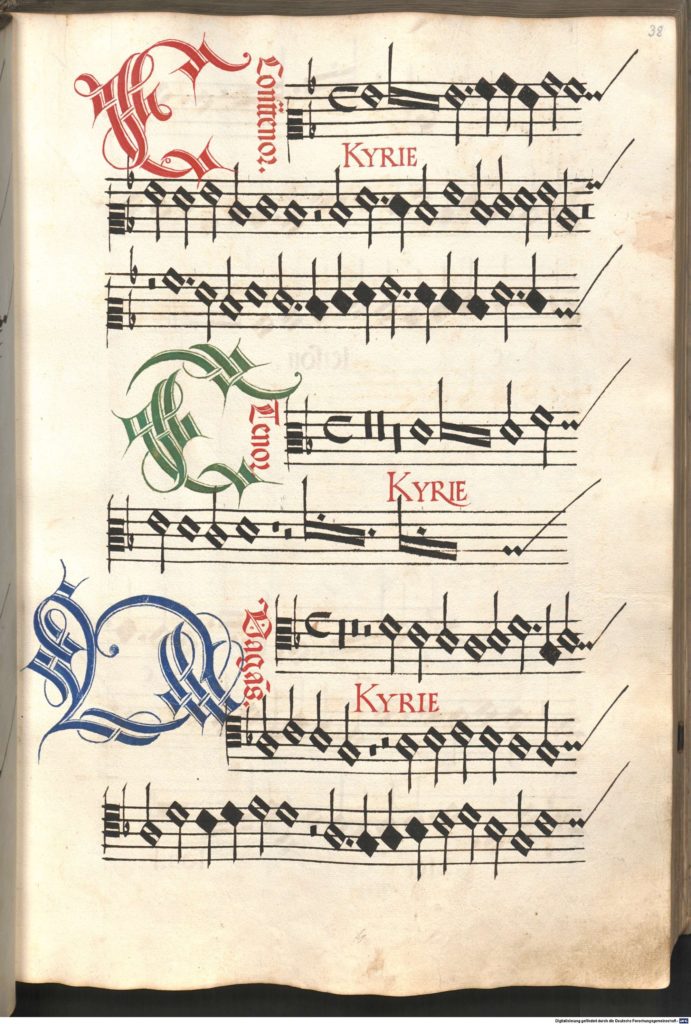 38
Contratenor.
KYRIE
Tenor
KYRIE
Vagans.
KYRIE
Digitalisierung gefördert durch die Deutsche Forschungsgemeinschaft - DFG